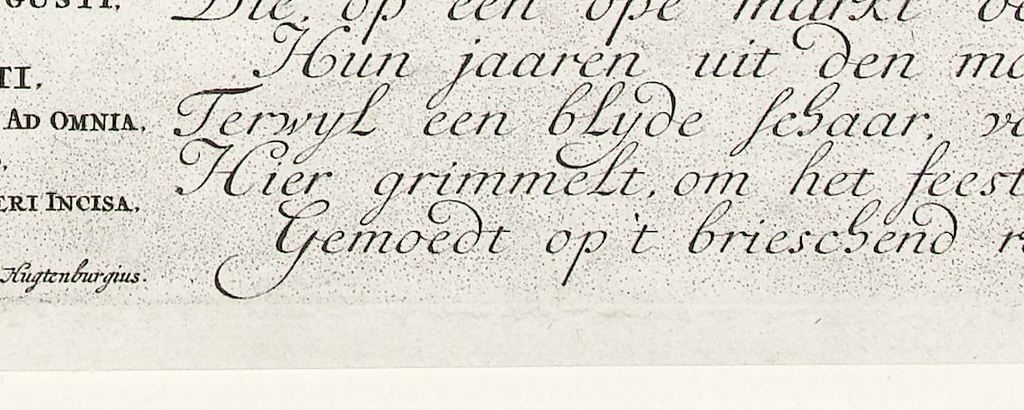 GUSTI,
TI,
AD OMNIA,
ERI INCISA,
Hugtenburgius.
Die, op een ope markt
Hun jaaren uit den
Terwyl een blyde schaar,
Hier grimmelt, om het feest
Gemoedt op 't brieschend